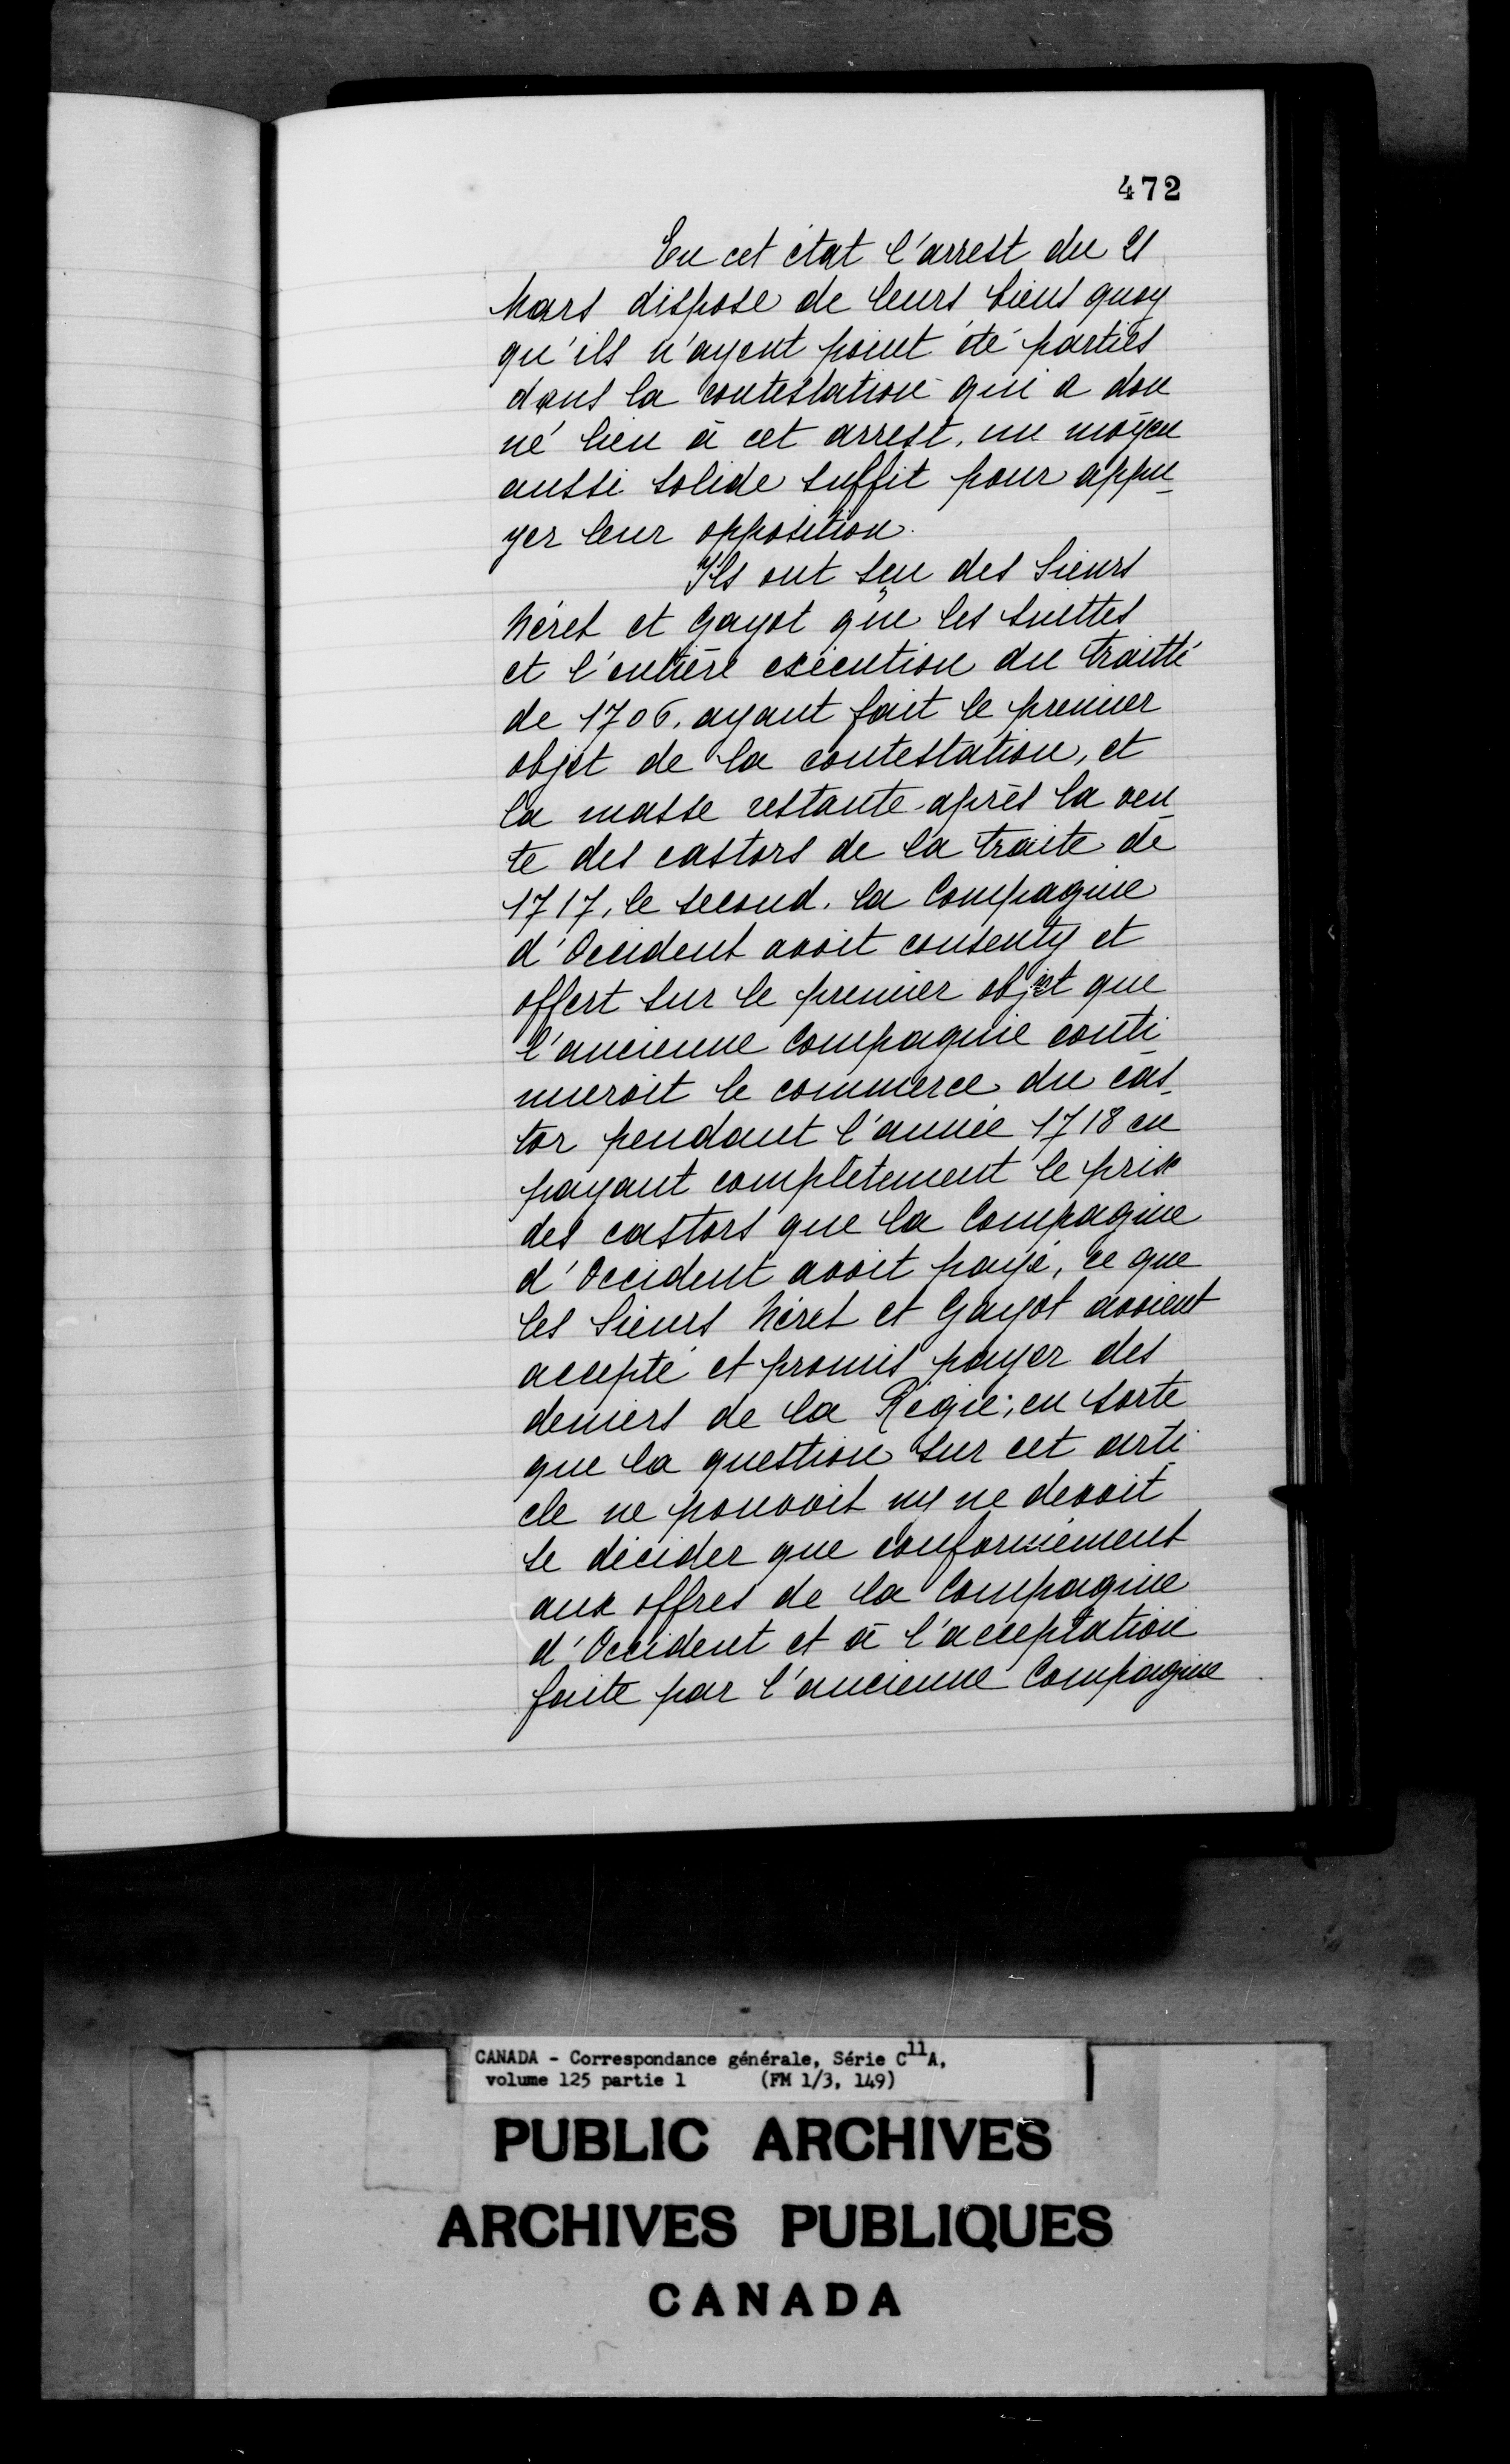 472
En cet état l'arrest du 21
Mars dispose de leurs biens quoy
qu'ils n'ayent point été parties
dans la contestation qui a don
né lieu à cet arrest, un moyen
aussi solide suffit pour appu_
yer leur opposition.
Ils ont sçu des Sieurs
Néret et Gayot que les suittes
et l'entière exécution du traitté
de 1706, ayant fait le premier
objet de la contestation, et
la masse restante après la ven
te des castors de la traite de
1717, le second, la Compagnie
d'Occident avoit consenty et
offert sur le premier objet que
l'ancienne Compagnie conti
nueroit le commerce du cas_
tor pendant l'année 1718 en
payant complètement le prix
des castors que la Compagnie
d'Occident avoit payé, ce que
les Sieurs Néret et Gayot avoient
accepté et promis payer des
deniers de la Régie; en sorte
que la question sur cet arti_
cle ne pouvoit ny ne devoit
se décider que conformément
aux offres de la Compagnie
d'Occident et à l'acceptation
faite par l'ancienne Compagnie
CANADA - Correspondance générale, Série C11A,
volume 125 partie 1 (FM 1/3, 149)
PUBLIC ARCHIVES
ARCHIVES PUBLIQUES
CANADA